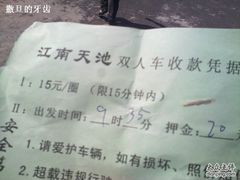 撒旦的牙齿
江南天池 双人车收款凭据
I：15元/圈 （限15分钟内）
II：出发时间：9时35分 押金：20
1.请爱护车辆，如有损坏、照
2.超载违规行驶
安全第